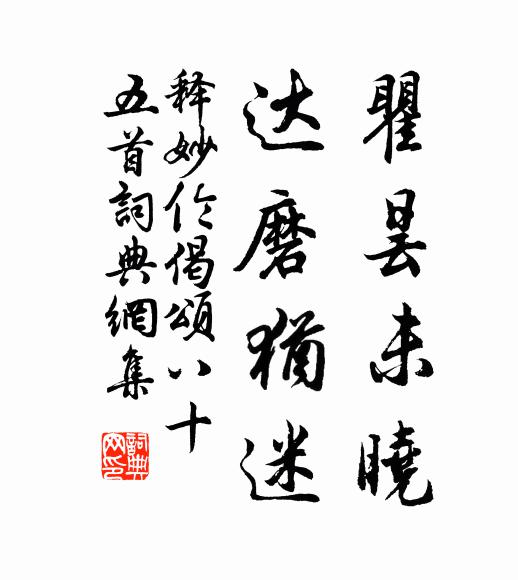 瞿昙未曉
达磨猶迷
释妙伦偈頌八十
五首詞典網集
詞典網印